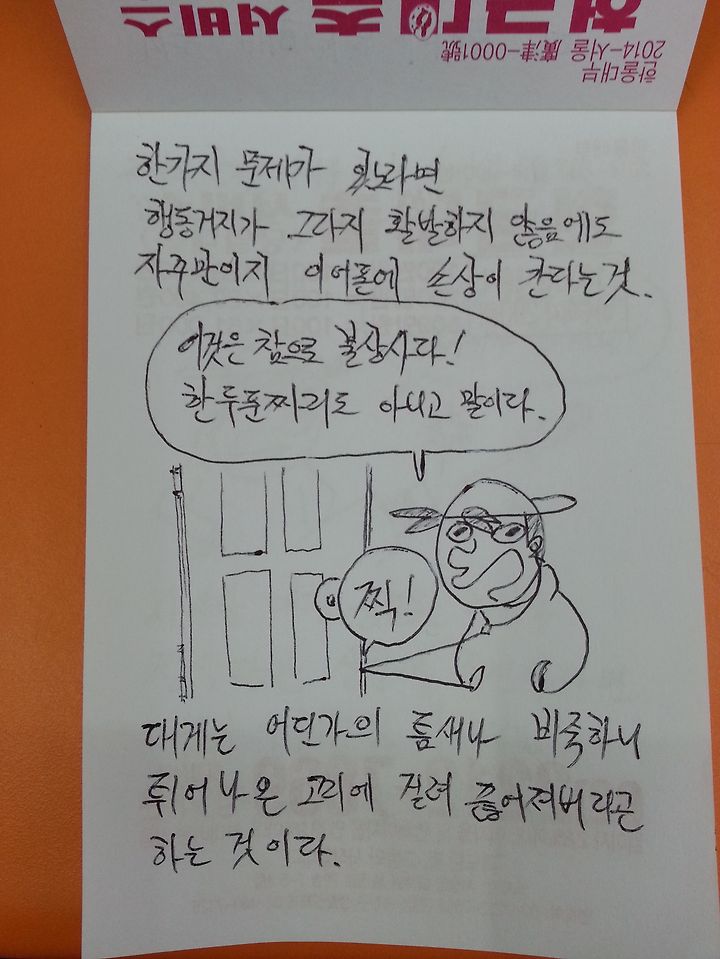 한울대부
2014-서울 廣津-0001號
서비스
한가지 문제가 있노라면
행동거지가 그다지 활발하지 않음에도
자주 이어폰에 손상이 간다는것.
이것은 참으로 불상사다!
한두푼짜리도 아니고 말이다.
찍!
대게는 어딘가의 틈새나 비죽하니
튀어나온 고리에 걸려 뜯어져버리곤
하는 것이다.